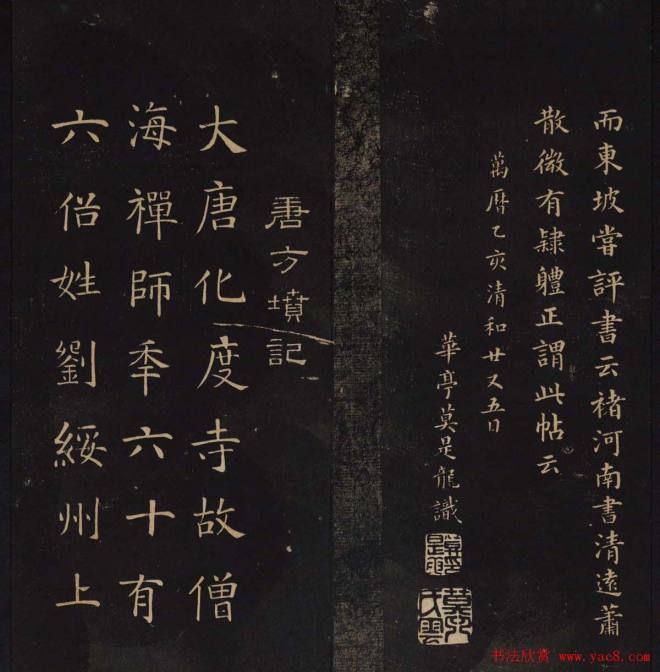 而東坡嘗評書云褚河南書清遠蕭
散微有隷體正謂此帖云
萬曆乙亥清和廿又五日
華亭莫是龍識
唐方墳記
大唐化度寺故僧
海禪師年六十有
六俗姓劉綏州上
书法欣赏 www.yac8.com